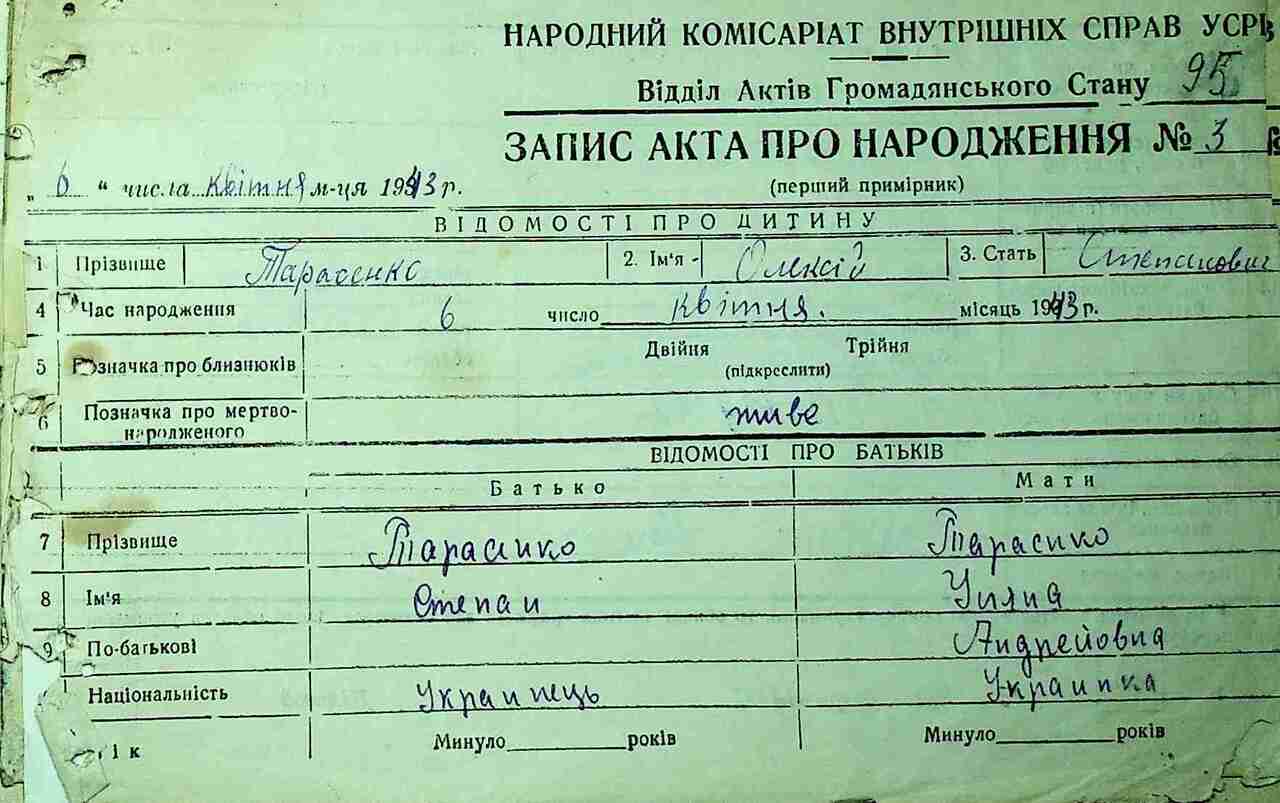 НАРОДНИЙ КОМІСАРІАТ ВНУТРІШНІХ СПРАВ УСРР
Відділ Актів Громадянського Стану 95
ЗАПИС АКТА ПРО НАРОДЖЕННЯ № 3
„ 6 “ числа квітня м-ця 1943 р. (перший примірник)
ВІДОМОСТІ ПРО ДИТИНУ
1 Прізвище Тарасенко 2. Ім'я - Олексій 3. Стать Степанович
4 Час народження 6 число квітня. місяць 1943 р.
5 Позначка про близнюків Двійня Трійня
(підкреслити)
6 Позначка про мертво-
народженого живе
ВІДОМОСТІ ПРО БАТЬКІВ
Батько Мати
7 Прізвище Тарасенко Тарасенко
8 Ім'я Степан Уляна
9 По-батькові Андрейовна
Національність Украинець Украинка
ік Минуло років Минуло років